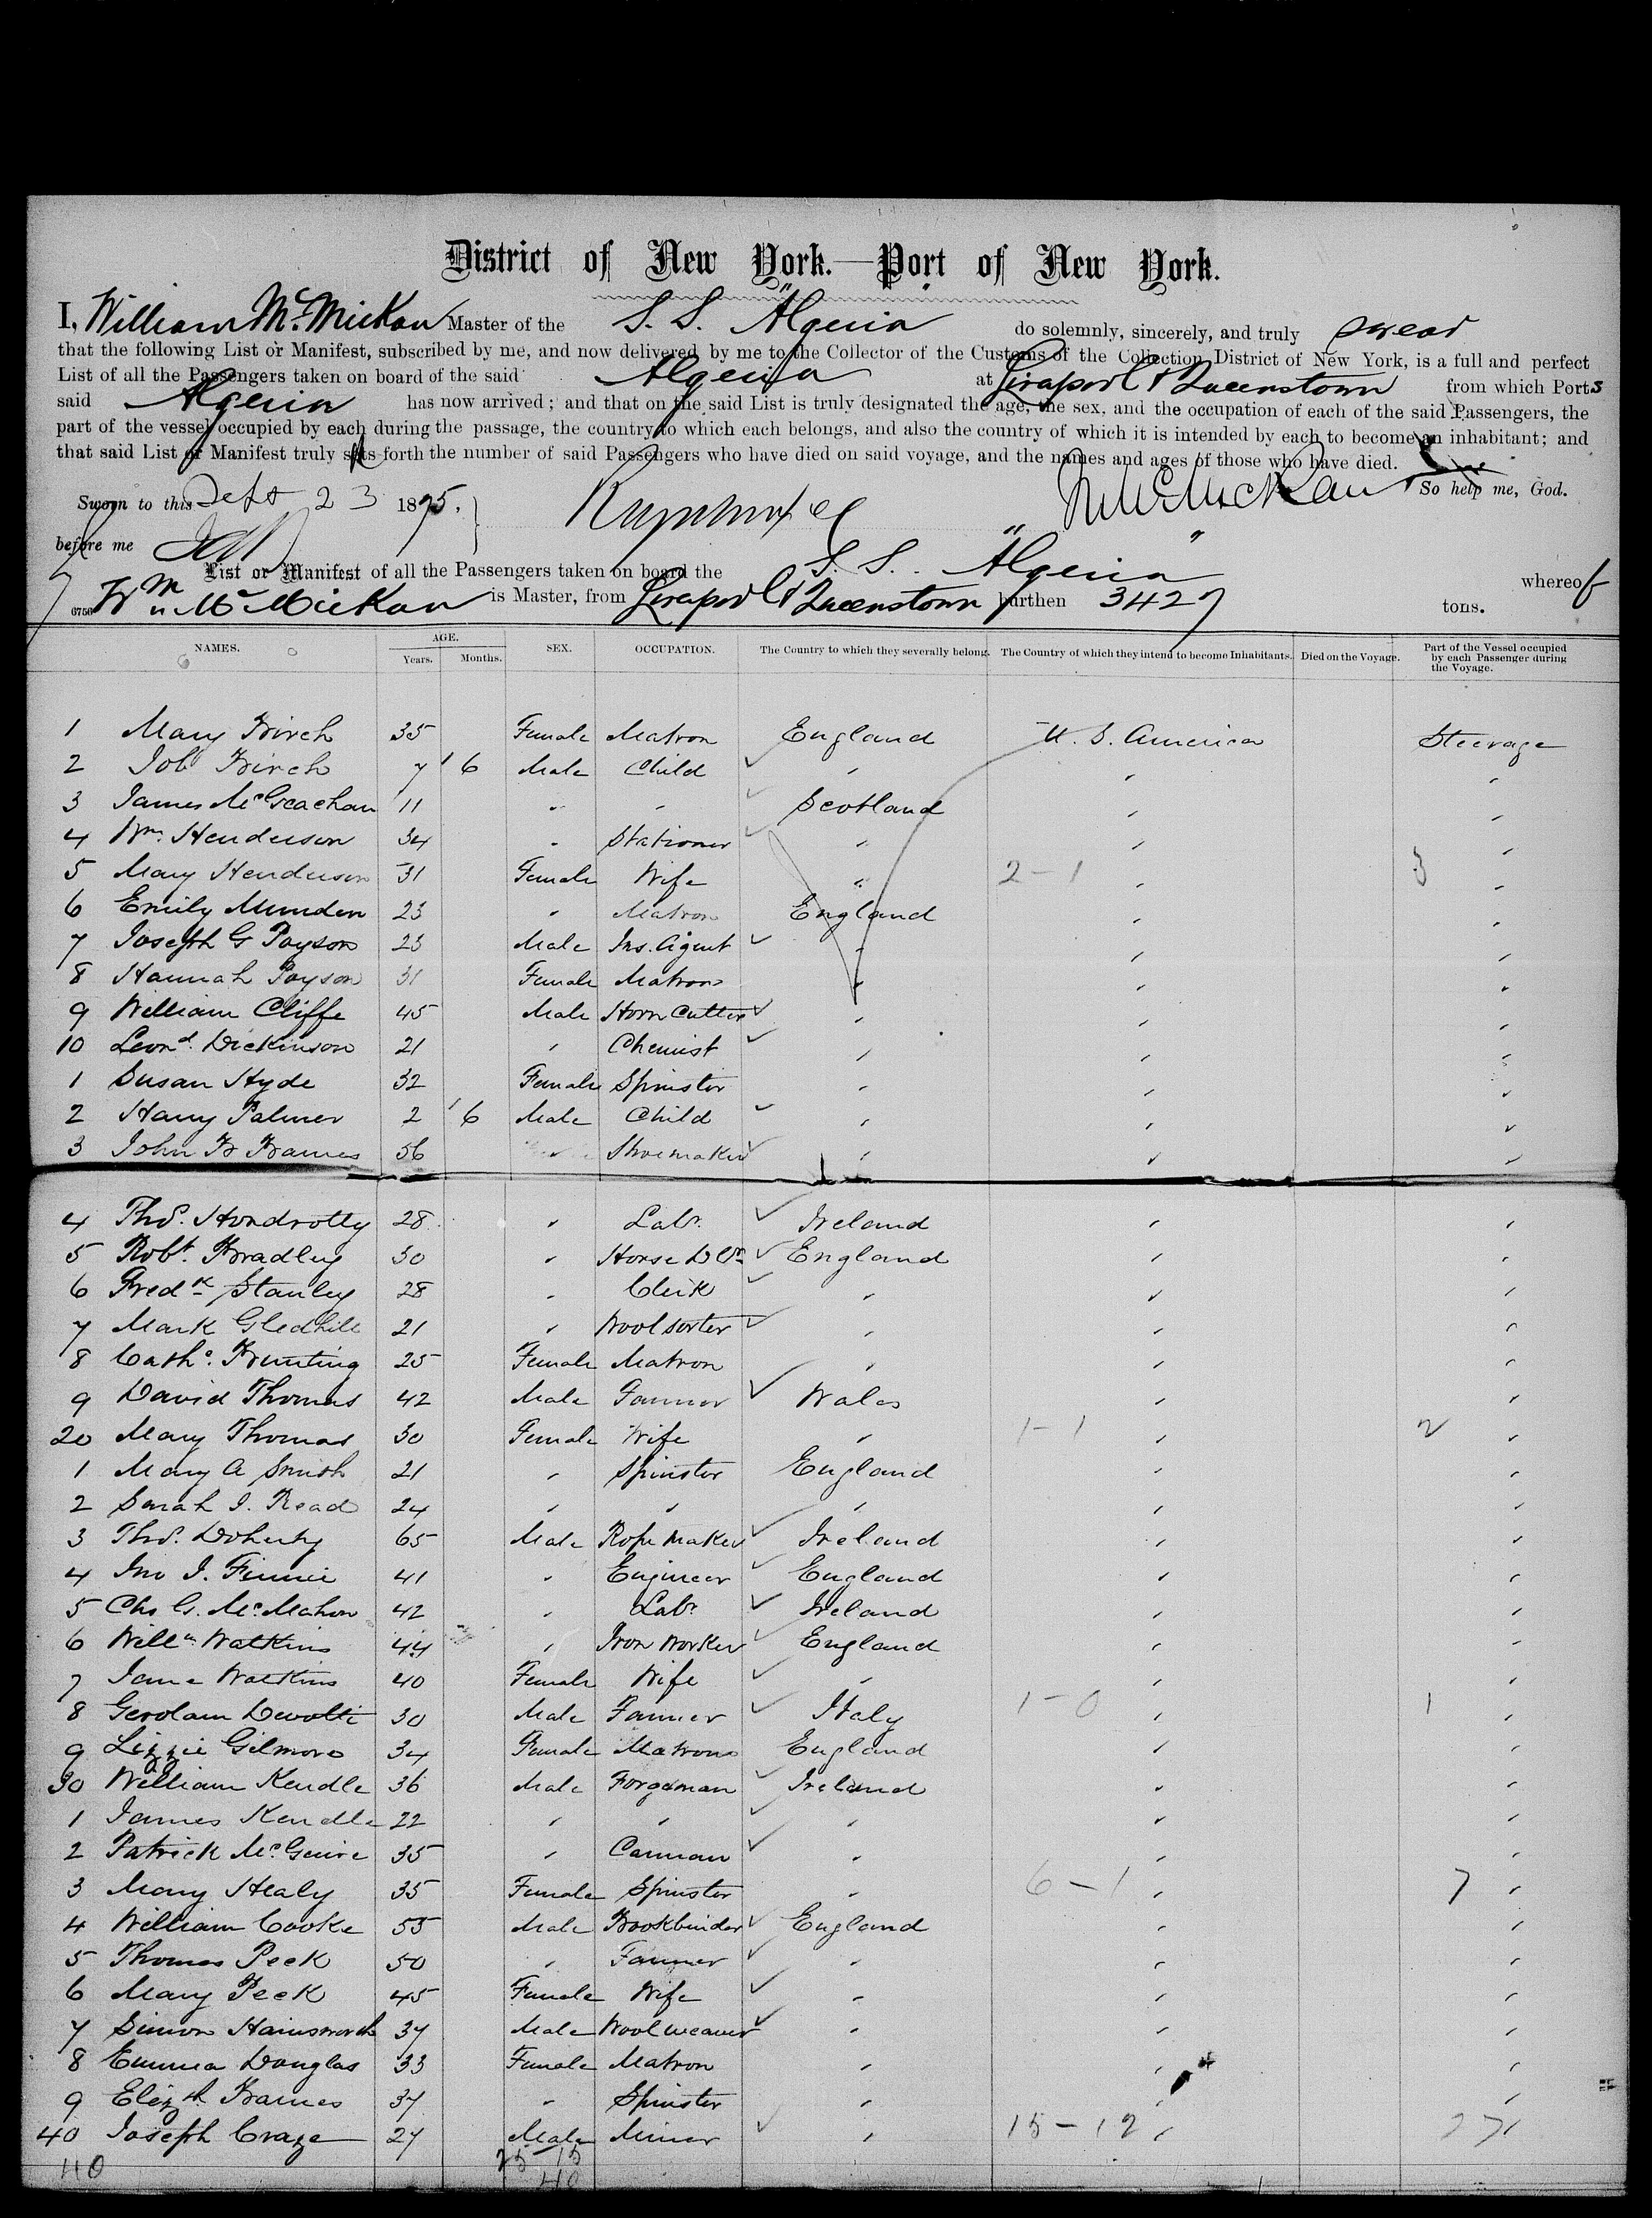 District of New York.—Port of New York.
I, William McMickan Master of the S. S. "Algeria" do solemnly, sincerely, and truly swear
that the following List or Manifest, subscribed by me, and now delivered by me to the Collector of the Customs of the Collection District of New York, is a full and perfect
List of all the Passengers taken on board of the said Algeria at Liverpool & Queenstown from which Ports
said Algeria has now arrived; and that on the said List is truly designated the age, the sex, and the occupation of each of the said Passengers, the
part of the vessel occupied by each during the passage, the country to which each belongs, and also the country of which it is intended by each to become an inhabitant; and
that said List or Manifest truly sets forth the number of said Passengers who have died on said voyage, and the names and ages of those who have died.
W McMickan So help me, God.
Sworn to this Sept 23 1875.
before me
List or Manifest of all the Passengers taken on board the S. S. "Algeria" whereof
6750 Wm McMickan is Master, from Liverpool & Queenstown burthen 3427 tons.
NAMES. AGE. Years. Months. SEX. OCCUPATION. The Country to which they severally belong. The Country of which they intend to become Inhabitants. Died on the Voyage. Part of the Vessel occupied by each Passenger during the Voyage.
1 Mary Birch 35 Female Matron England U. S. America Steerage
2 Job Birch 7 6 Male Child "
3 James McGeachan 11 " " Scotland
4 Wm. Henderson 34 " Stationer "
5 Mary Henderson 31 Female Wife " 2-1 3
6 Emily Munden 23 " Matron England
7 Joseph G Payson 23 Male Ins. Agent "
8 Hannah Payson 31 Female Matron "
9 William Cliffe 45 Male Horn Cutter "
10 Leond. Dickinson 21 " Chemist "
1 Susan Hyde 32 Female Spinster "
2 Harry Palmer 2 6 Male Child "
3 John B Barnes 56 " Shoemaker "
4 Thos. 28 " Labr. Ireland
5 Robt. Bradley 30 " Horse Dlr England
6 Fredk Stanley 28 " Clerk "
7 Mark Gledhill 21 " Wool sorter "
8 Cathe. Bunting 25 Female Matron "
9 David Thomas 42 Male Farmer Wales
20 Mary Thomas 30 Female Wife " 1-1 2
1 Mary A Smith 21 " Spinster England
2 Sarah J. Read 24 " " "
3 Thos. Doherty 65 Male Rope Maker Ireland
4 Jno J. Finnie 41 " Engineer England
5 Chs G. McMahon 42 " Labr. Ireland
6 Willm Watkins 44 " Iron Worker England
7 Jane Watkins 40 Female Wife "
8 Gerolam Devolti 30 Male Farmer Italy 1-0 1
9 Lizzie Gilmore 34 Female Matron England
30 William Kendle 36 Male Forgeman Ireland
1 James Kendle 22 " " "
2 Patrick McGuire 35 " Carman "
3 Mary Healy 35 Female Spinster " 6-1 7
4 William Cooke 55 Male Bookbinder England
5 Thomas Peek 50 " Farmer "
6 Mary Peek 45 Female Wife "
7 Simon Hainsworth 37 Male Wool weaver "
8 Emma Douglas 33 Female Matron "
9 Elizth Barnes 37 " Spinster "
40 Joseph Craze 27 Male Miner " 15-12 27
40 25-15
40